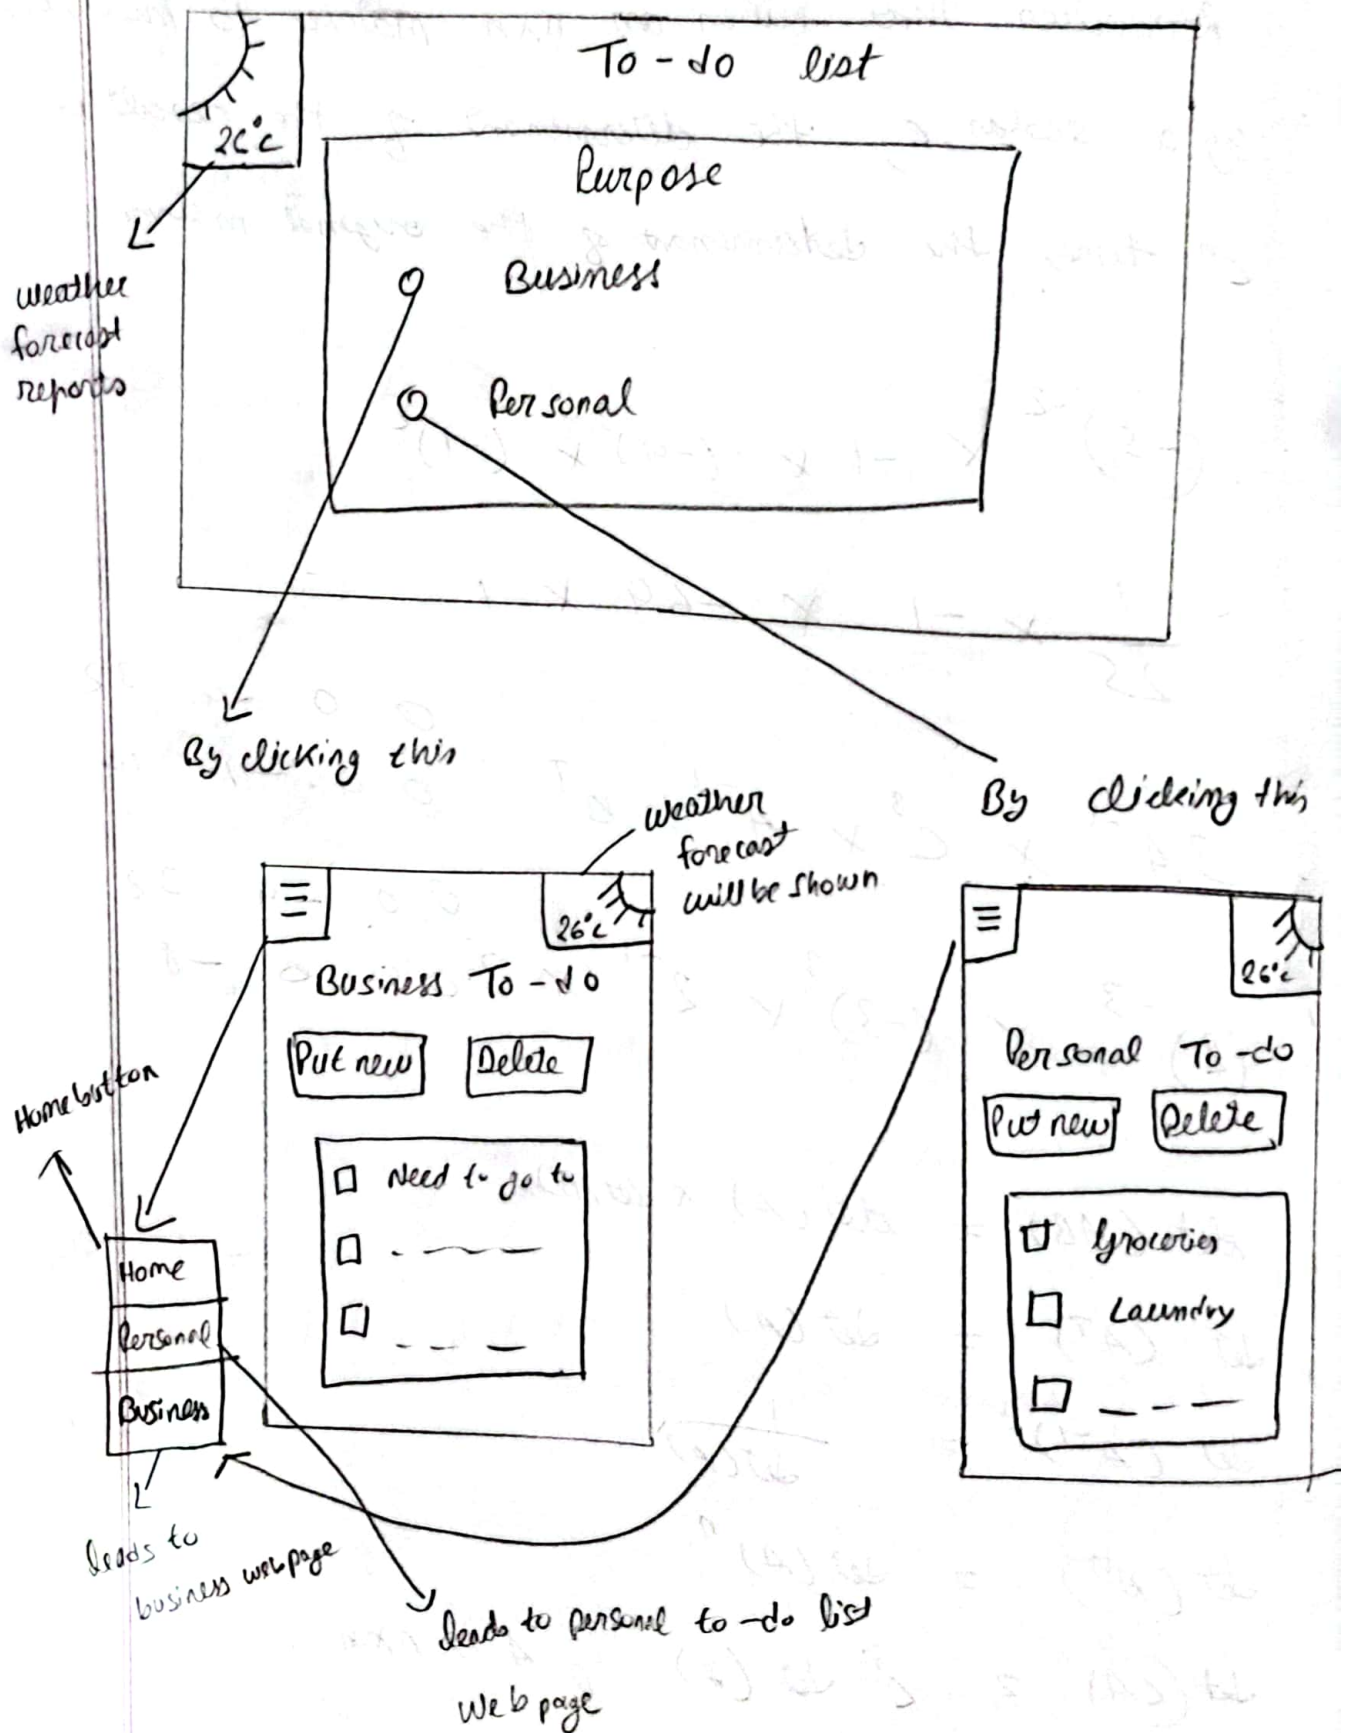 To-do list
26°c
Purpose
Business
Personal
weather
forecast
reports
By clicking this
By clicking this
weather
forecast
will be shown
26°c
Business To-do
Put new
Delete
Need to go to
Home button
Home
Personal
Business
leads to
business webpage
leads to personal to-do list
Web page
26°c
Personal To-do
Put new
Delete
Groceries
Laundry